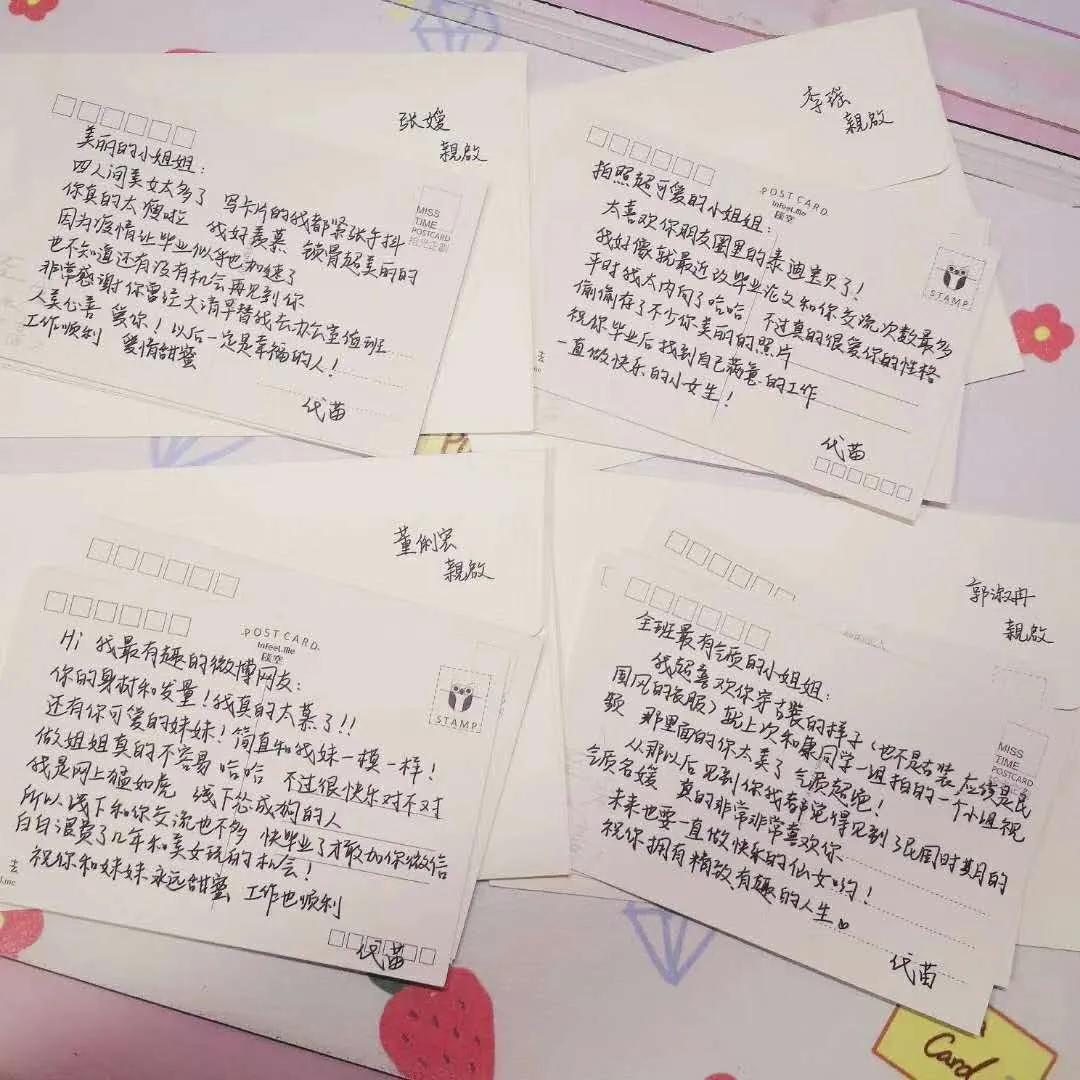 张嫒
親啟
美丽的小姐姐:
四人间美女太多了 写卡片的我都紧张手抖
你真的太瘦啦 我好羡慕 锁骨超美丽的
因为疫情让毕业似乎也加速了
也不知道还有没有机会再见到你
非常感谢你曾经大清早替我去办公室值班
人美心善 爱你!以后一定是幸福的人!
工作顺利 爱情甜蜜
代苗
MISS
TIME
POSTCARD
李
親啟
拍照超可爱的小姐姐:
太喜欢你朋友圈里的泰迪宝贝了!
我好像就最近改毕业论文和你交流次数最多
平时我太内向了哈哈 不过真的很爱你的性格
偷偷存了不少你美丽的照片
祝你毕业后找到自己满意的工作
一直做快乐的小女生!
代苗
POSTCARD
InFeel.me
STAMP
董俐宏
親啟
POSTCARD
InFeel.me
STAMP
Hi 我最有趣的微博网友:
你的身材和发量!我真的太慕了!!
还有你可爱的妹妹!简直和我妹一模一样!
做姐姐真的不容易 哈哈 不过很快乐对不对
我是网上猛如虎 线下怂成狗的人
所以线下和你交流也不多 快毕业了才敢加你微信
白白浪费了几年和美女玩的机会!
祝你和妹妹永远甜蜜 工作也顺利
代苗
郭淑冉
親啟
全班最有气质的小姐姐:
我超喜欢你穿古装的样子(也不是古装 应该是民
国风的衣服)就上次和康同学一组拍的一个小组视
频 那里面的你太美了 气质超绝!
从那以后见到你我都觉得见到了民国时期的
气质名媛 真的非常非常喜欢你
未来也要一直做快乐的仙女哟!
祝你拥有精致有趣的人生
代苗
MISS
TIME
POSTCARD
Card